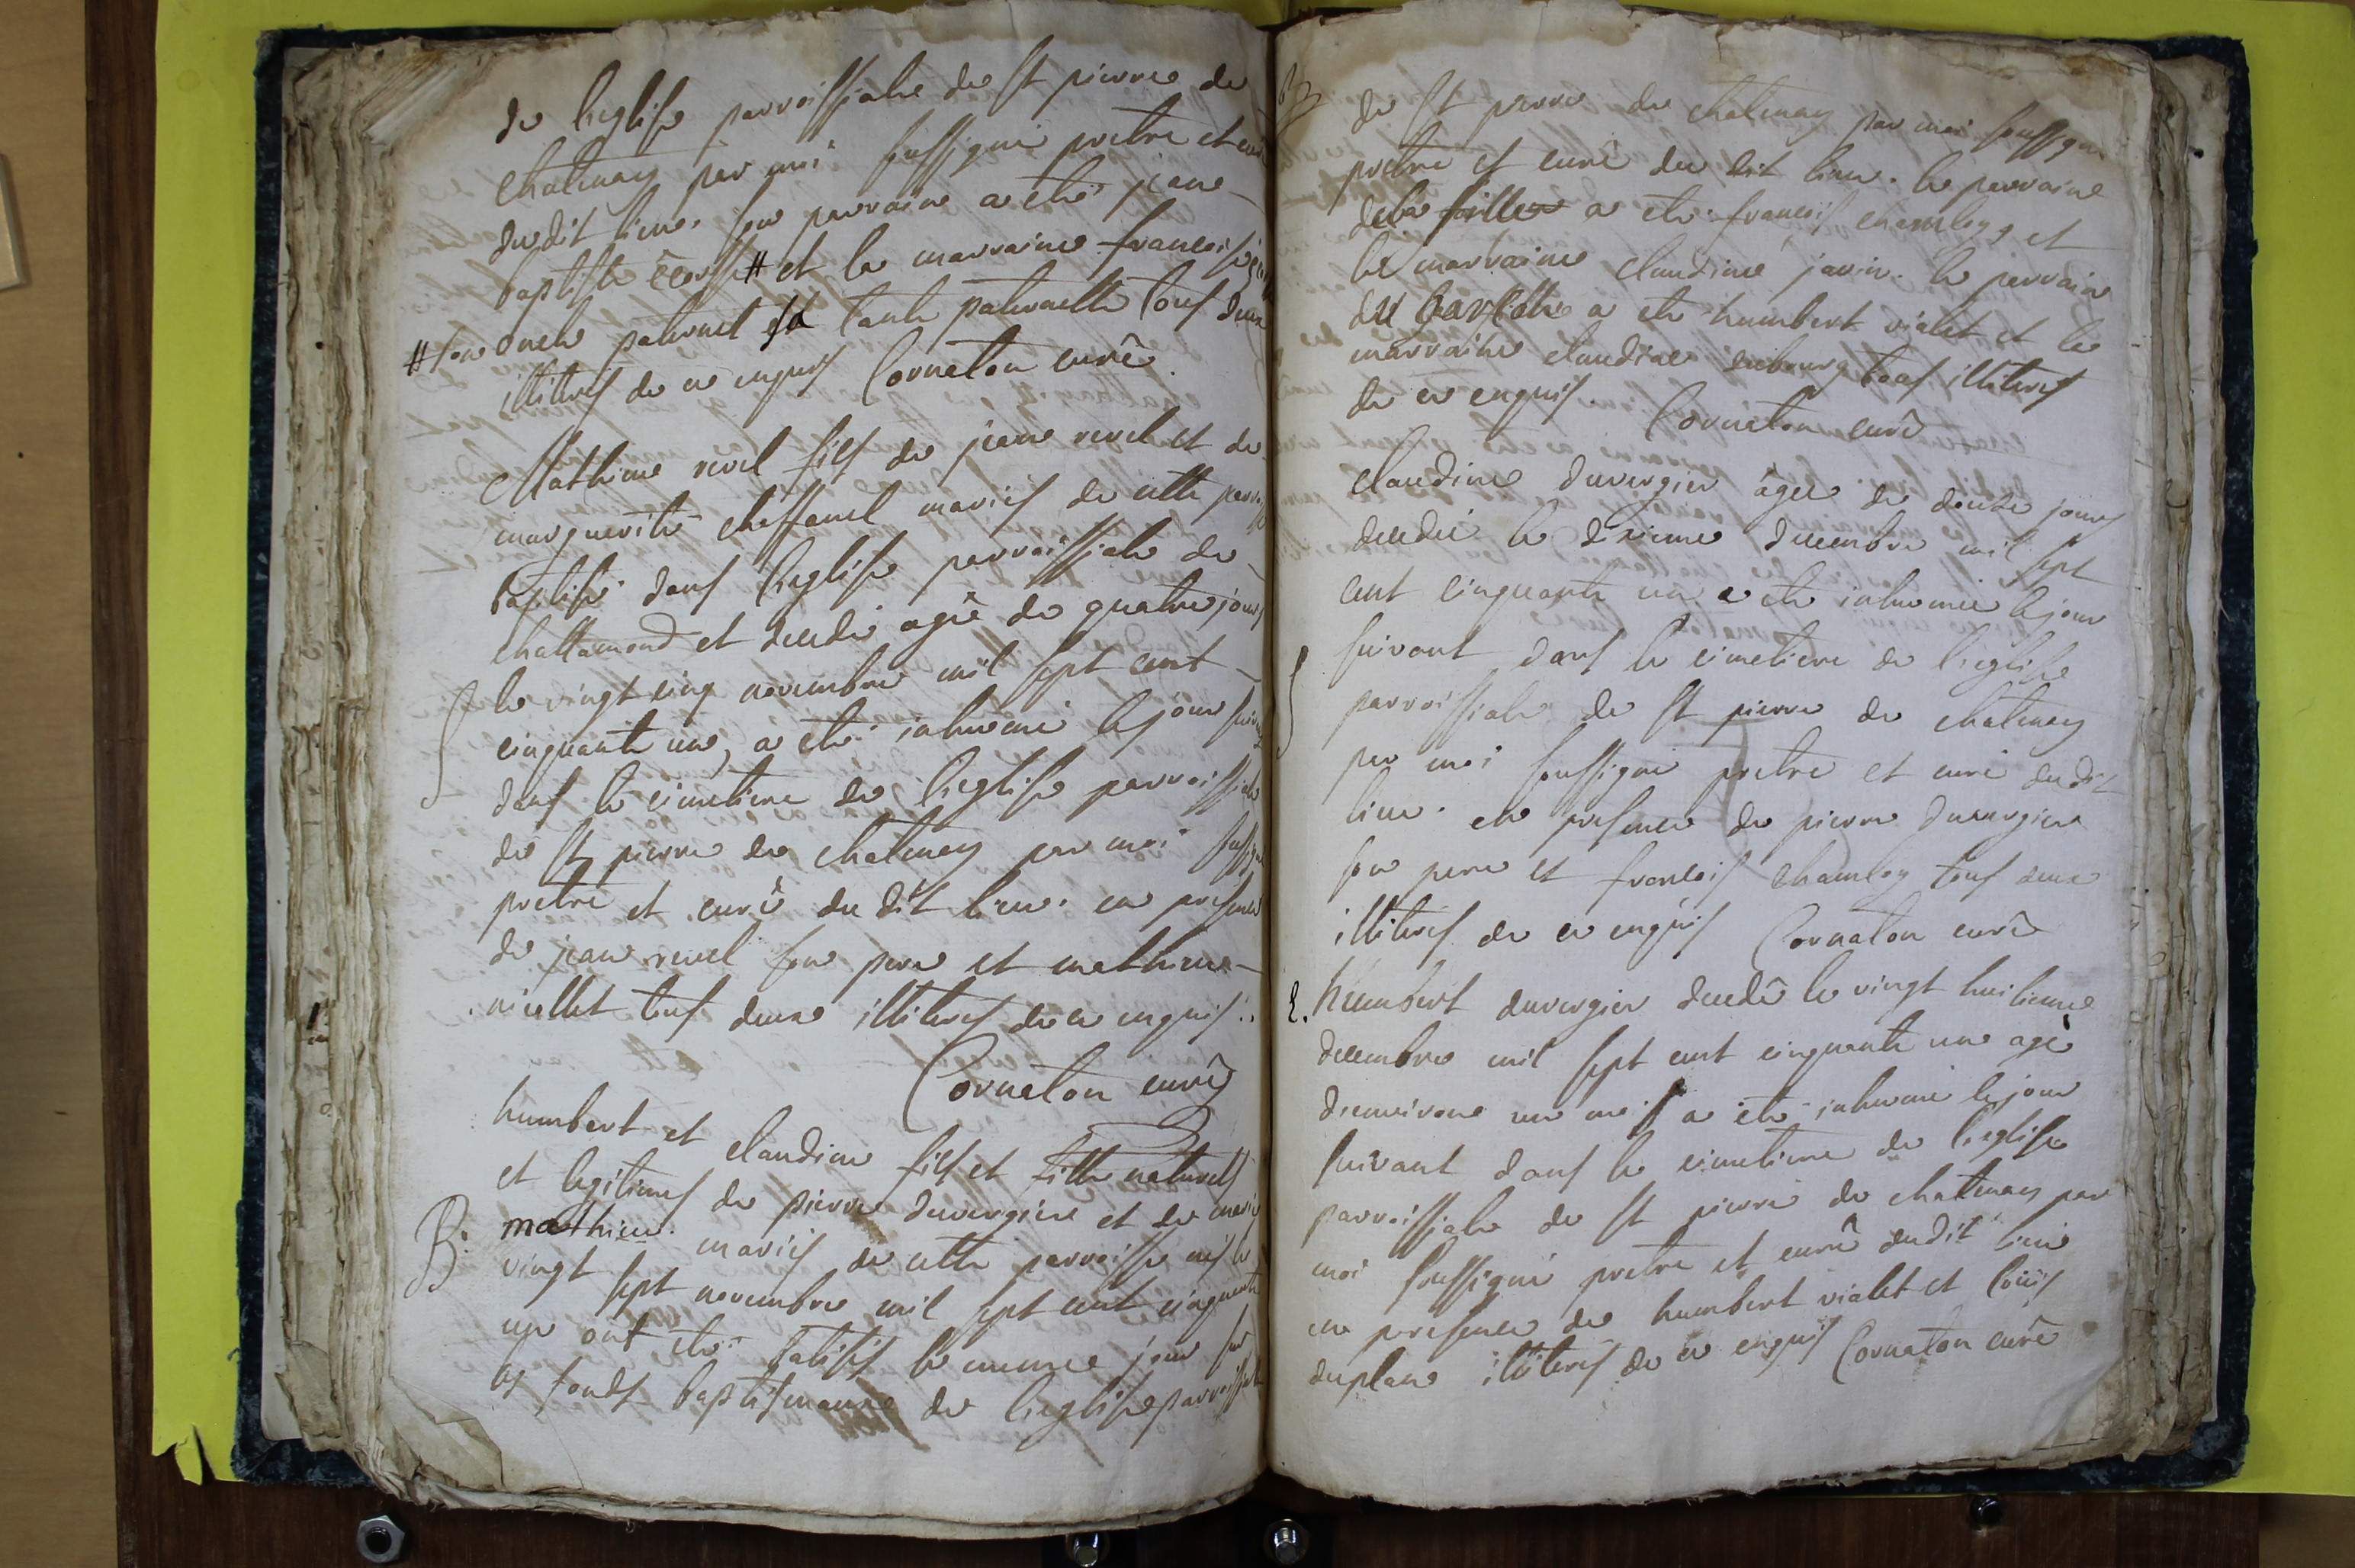 de l'eglise parroissiale de st pierre de
chatenay par moi soussigné pretre et curé
dudit lieu. son parraine a eté jeane
baptiste # et la marraine francoise
# son oncle paternel sa tante paternelle tous deux
illiteres de ce enquis Cornaton curé
Mathieu revel fils de jeane revel et de
marguerite mariés de cette
baptisé dans l'eglise parroissiale de
chattamond et decedé agé de quatre jours
le vingt cinq novembre mil sept cent
cinquante un, a eté inhumé le jour
dans le cimetiere de l'eglise parroissiale
de st pierre de chatenay par moi
pretre et curé du dit lieu. en presence
de jean revel son pere et mathieu
tous deux illiteres de ce enquis.
Cornaton curé
humbert et claudine fils et fille naturels
et legitimes de pierre duvergier et de marie
B. mathieu. mariés de cette parroisse nés le
vingt sept novembre mil sept cent cinquante
un ont eté batisés le meme jour sur
les fonds baptismaux de l'eglise parroissiale
de st pierre de chatenay par moi
pretre et curé du dit lieu. le parraine
de la fille a eté francois chamley, et
la marraine claudine javin. le parrain
du garson a eté humbert vialet et la
marraine claudine tous illiteres
de ce enquis. Cornaton curé
claudine duvergier âgée de douse jours
decedée le dixieme decembre mil sept
cent cinquante un a eté inhumée le jour
suivant dans le cimetiere de l'eglise
parroissiale de st pierre de chatenay
par moi soussigné pretre et curé dudit
lieu. en presence de pierre duvergier
son pere et francois chamley tous deux
illiteres de ce enquis Cornaton curé
humbert duvergier decedé le vingt huitieme
decembre mil sept cent cinquante une agé
d'environe un mois a eté inhumé le jour
suivant dans le cimetiere de l'eglise
parroissiale de st pierre de chatenay par
moi soussigné pretre et curé dudit lieu
en presence de humbert vialet et louis
duplane illiteres de ce enquis Cornaton curé